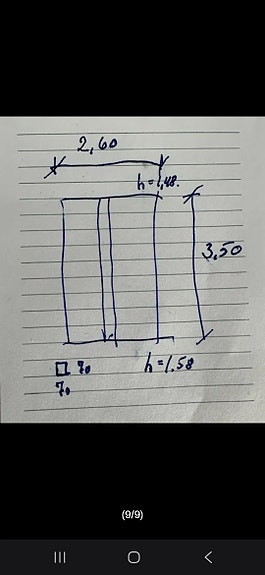 2,60
h=1,48.
3,50
70 h=1.58
70
(9/9)